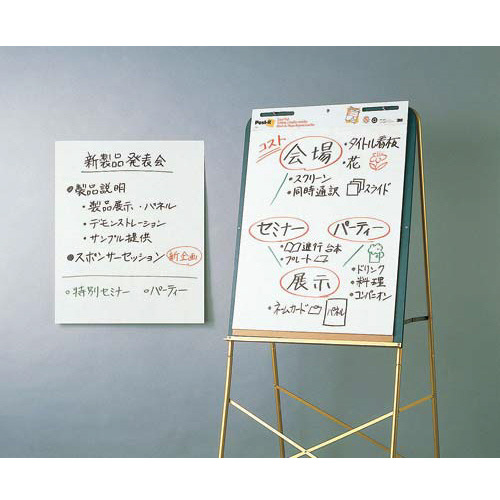 新製品発表会
●製品説明
・製品展示・パネル
・デモンストレーション
・サンプル提供
●スポンサーセッション 新企画
○特別セミナー ○パーティー
Post-it
3M
コスト
会場
・タイトル看板
・花
・スクリーン
・同時通訳 スライド
セミナー
パーティー
・進行台本
・プレート
・ドリンク
・料理
・コンパニオン
展示
・ネームカード
パネル